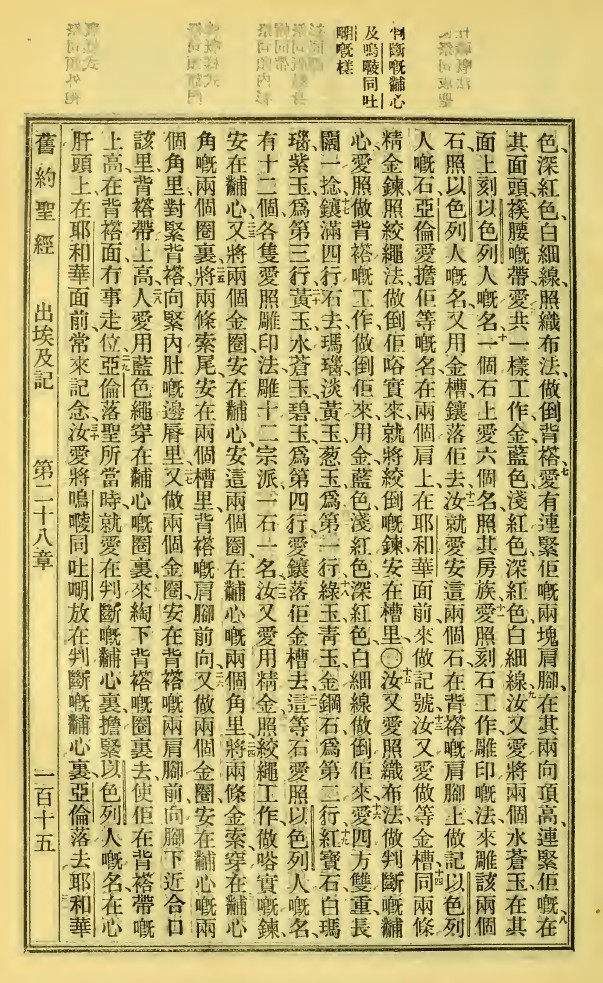 判斷嘅黼心
及嗚㖫同吐
㖼嘅樣
色、深紅色、白細線、照織布法做倒背褡、愛有連緊佢嘅兩塊肩腳、在其兩向頂高連緊佢嘅、在
其面頭㨆腰嘅帶、愛共一樣工作、金藍色、淺紅色、深紅色、白細線、汝又愛將兩個水蒼玉、在其
面上刻以色列人嘅名、一個石上愛六個名、照其房族、愛照刻石工作、雕印嘅法、來雕該兩個
石、照以色列人嘅名、又用金槽鑲落佢去、汝就愛安這兩個石在背褡嘅肩腳上、做記以色列
人嘅石、亞倫愛擔佢等嘅名、在兩個肩上、在耶和華面前、來做記號、汝又愛做等金槽、同兩條
精金鍊、照絞繩法做倒佢㗂實來、就將絞倒嘅鍊、安在槽里、〇汝又愛照織布法、做判斷嘅黼
心、愛照做背褡嘅工作做倒佢來、用金、藍色、淺紅色、深紅色、白細線、做倒佢來、愛四方雙重、長
闊一捻、鑲滿四行石去、瑪瑙、淡黃玉、葱玉、爲第一行、綠玉、靑玉、金鋼石、爲第二行、紅寶石、白瑪
瑙、紫玉、爲第三行、黃玉、水蒼玉、碧玉、爲第四行、愛鑲落佢金槽去、這等石愛照以色列人嘅名、
有十二個、各隻愛照雕印法、雕十二宗派、一石一名、汝又愛用精金、照絞繩工作做㗂實嘅鍊、
安在黼心、又將兩個金圈、安在黼心、安這兩個圈、在黼心嘅兩個角里、將兩條金索、穿在黼心
角嘅兩個圈裏、將兩條索尾、安在兩個槽里、背褡嘅肩腳前向、又做兩個金圈、安在黼心嘅兩
個角里、對緊背褡、向緊內肚嘅邊唇里、又做兩個金圈、安在背褡嘅兩肩腳前向腳下、近合口
該里、背褡帶上高、人愛用藍色繩、穿在黼心嘅圈裏、來綯下背褡嘅圈裏去、使佢在背褡帶嘅
上高、在背褡面冇事走位、亞倫落聖所當時、就愛在判斷嘅黼心裏、擔緊以色列人嘅名在心
肝頭上、在耶和華面前常來記念、汝愛將嗚㖫同吐㖼、放在判斷嘅黼心裏、亞倫落去耶和華
舊約聖經 出埃及記 第二十八章 一百十五